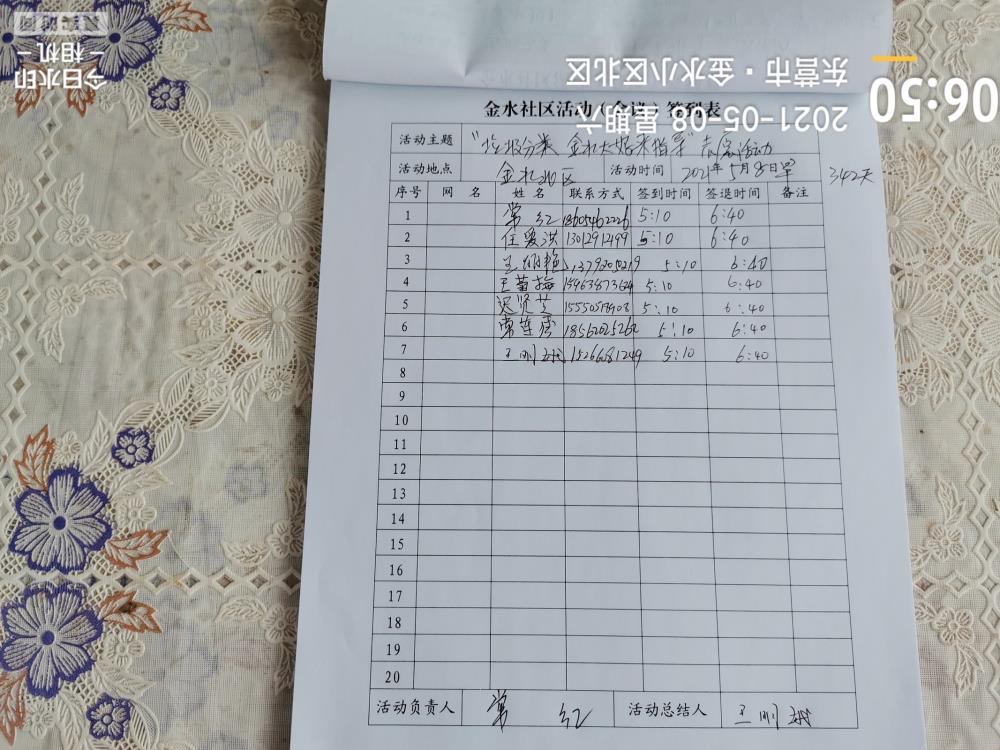 06:50
2021-05-08 星期六
东营市·金水小区北区
今日水印
-相机-
金水社区活动（会议）签到表
活动主题 "垃圾分类 金水大妈来指导"志愿活动
活动地点 金水社区 活动时间 2021年5月8日早 342天
序号 网 名 姓 名 联系方式 签到时间 签退时间 备注
1 常红 18605462226 5:10 6:40
2 任爱洪 13012912499 5:10 6:40
3 5:10 6:40
4 5:10 6:40
5 迟贤芝 5:10 6:40
6 5:10 6:40
7 王明 15266681249 5:10 6:40
8
9
10
11
12
13
14
15
16
17
18
19
20
活动负责人 常 红 活动总结人 王明